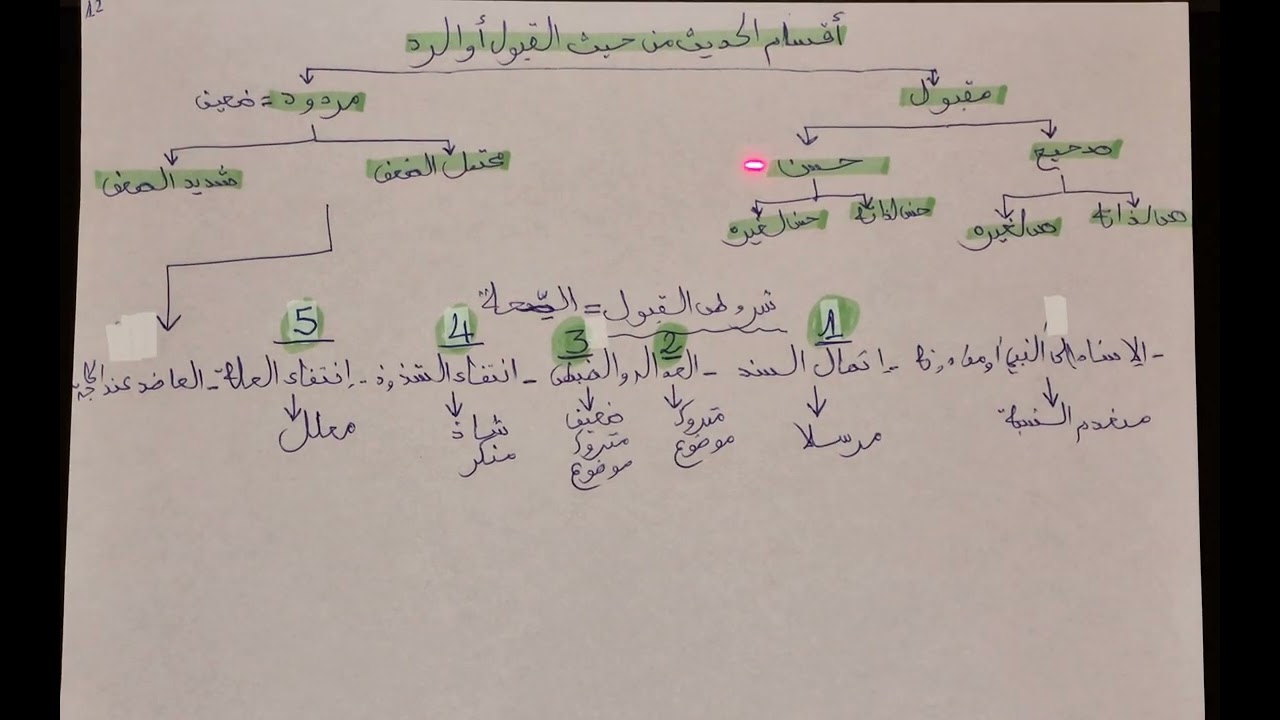 12
أقسام الحديث من حيث القبول أو الرد
مقبول
مردود = ضعيف
صحيح
حسن
محتمل الضعف
شديد الضعف
ص لذاته
ص لغيره
حسن لذاته
حسن لغيره
شروط القبول = الصحة
1 2 3 4 5
- الإسناد إلى النبي أو من دونه - اتصال السند - العدالة والضبط - انتفاء الشذوذ - انتفاء العلة - العاضد عند الحاجة
منعدم النسبة
مرسلا
متروك
موضوع
ضعيف
متروك
موضوع
شاذ
منكر
معلل